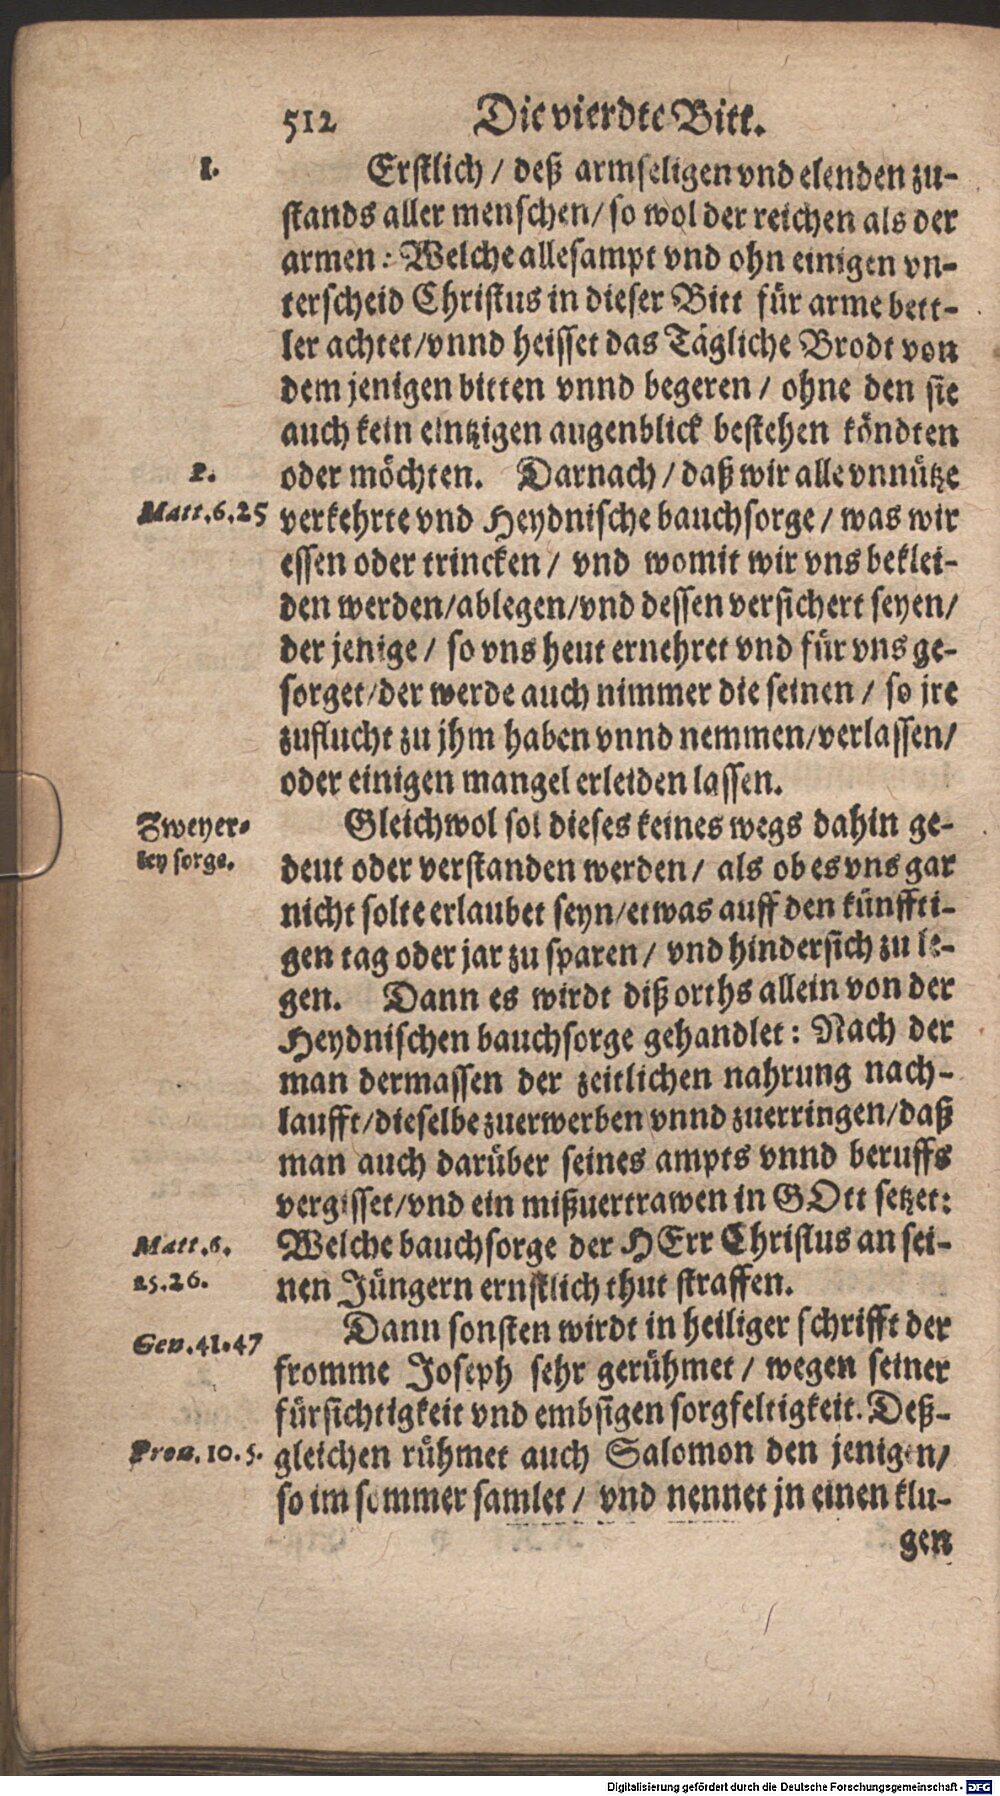 512 Die vierdte Bitt.
1. Erstlich / deß armseligen vnd elenden zu-
stands aller menschen / so wol der reichen als der
armen : Welche allesampt vnd ohn einigen vn-
terscheid Christus in dieser Bitt für arme bett-
ler achtet / vnnd heisset das Tägliche Brodt von
dem jenigen bitten vnnd begeren / ohne den sie
auch kein eintzigen augenblick bestehen köndten
2. oder möchten. Darnach / daß wir alle vnnütze
Matt.6.25 verkehrte vnd Heydnische bauchsorge / was wir
essen oder trincken / vnd womit wir vns beklei-
den werden / ablegen / vnd dessen versichert seyen /
der jenige / so vns heut ernehret vnd für vns ge-
sorget / der werde auch nimmer die seinen / so jre
zuflucht zu jhm haben vnnd nemmen / verlassen /
oder einigen mangel erleiden lassen.
Zweyer- Gleichwol sol dieses keines wegs dahin ge-
ley sorge. deut oder verstanden werden / als ob es vns gar
nicht solte erlaubet seyn / etwas auff den künffti-
gen tag oder jar zu sparen / vnd hindersich zu le-
gen. Dann es wirdt diß orths allein von der
Heydnischen bauchsorge gehandlet : Nach der
man dermassen der zeitlichen nahrung nach-
laufft / dieselbe zuerwerben vnnd zuerringen / daß
man auch darüber seines ampts vnnd beruffs
vergisset / vnd ein mißuertrawen in GOtt setzet :
Matt.6. Welche bauchsorge der HErr Christus an sei-
25.26. nen Jüngern ernstlich thut straffen.
Gen.41.47 Dann sonsten wirdt in heiliger schrifft der
fromme Joseph sehr gerühmet / wegen seiner
fürsichtigkeit vnd embsigen sorgfeltigkeit. Deß-
Prou.10.5. gleichen rühmet auch Salomon den jenigen /
so im sommer samlet / vnd nennet jn einen klu-
gen
Digitalisierung gefördert durch die Deutsche Forschungsgemeinschaft - DFG